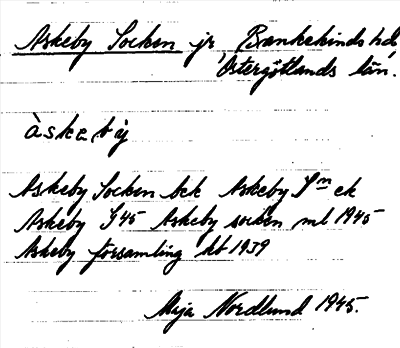 Askeby Socken jr Bankekinds hd,
Östergötlands län.
àskebÿ
Askeby Socken bek Askeby Sn ek
Askeby G45 Askeby socken ml 1945
Askeby församling kb 1939
Maja Nordlund 1945.